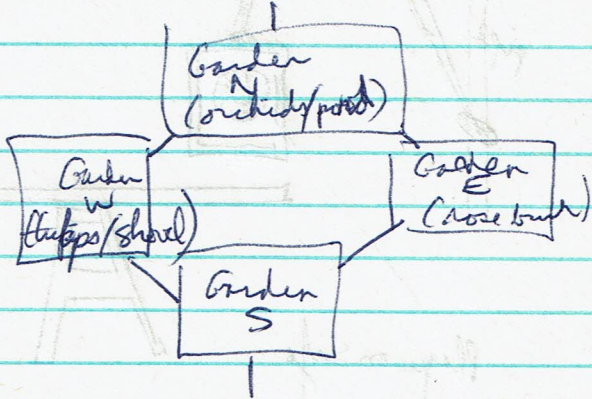 Garden
N
(orchids/pond)
Garden
W
tulips/shovel)
Garden
E
(rose bush)
Garden
S